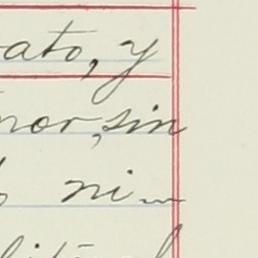 ato, y
nor, sin
ni